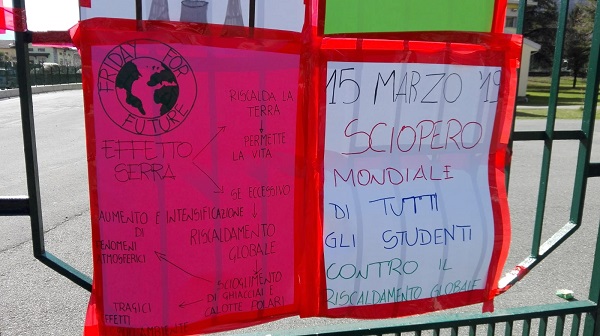 FRIDAY FOR
FUTURE
EFFETTO
SERRA
RISCALDA LA
TERRA
PERMETTE
LA VITA
SE ECCESSIVO
RISCALDAMENTO
GLOBALE
AUMENTO E INTENSIFICAZIONE
DI
FENOMENI
ATMOSFERICI
SCIOGLIMENTO
DI GHIACCIAI E
CALOTTE POLARI
TRAGICI
EFFETTI
15 MARZO '19
SCIOPERO
MONDIALE
DI TUTTI
GLI STUDENTI
CONTRO IL
RISCALDAMENTO GLOBALE